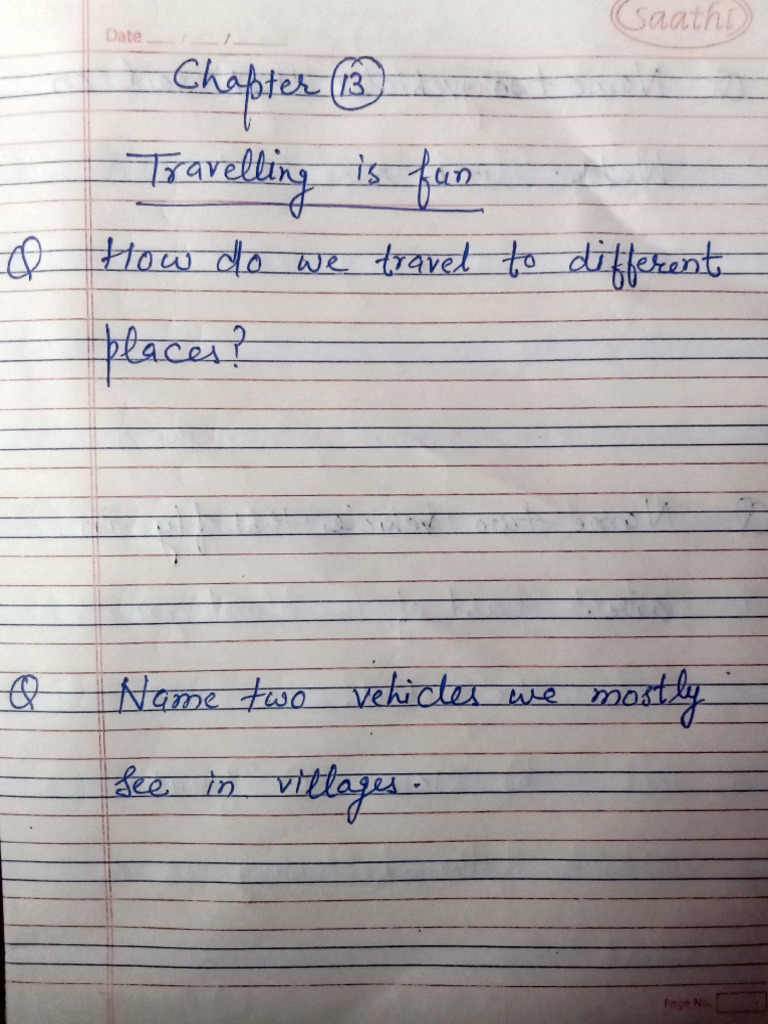 Saathi
Date __/__/____
Chapter 13
Travelling is fun
Q How do we travel to different
places?
Q Name two vehicles we mostly
see in villages.
Page No.